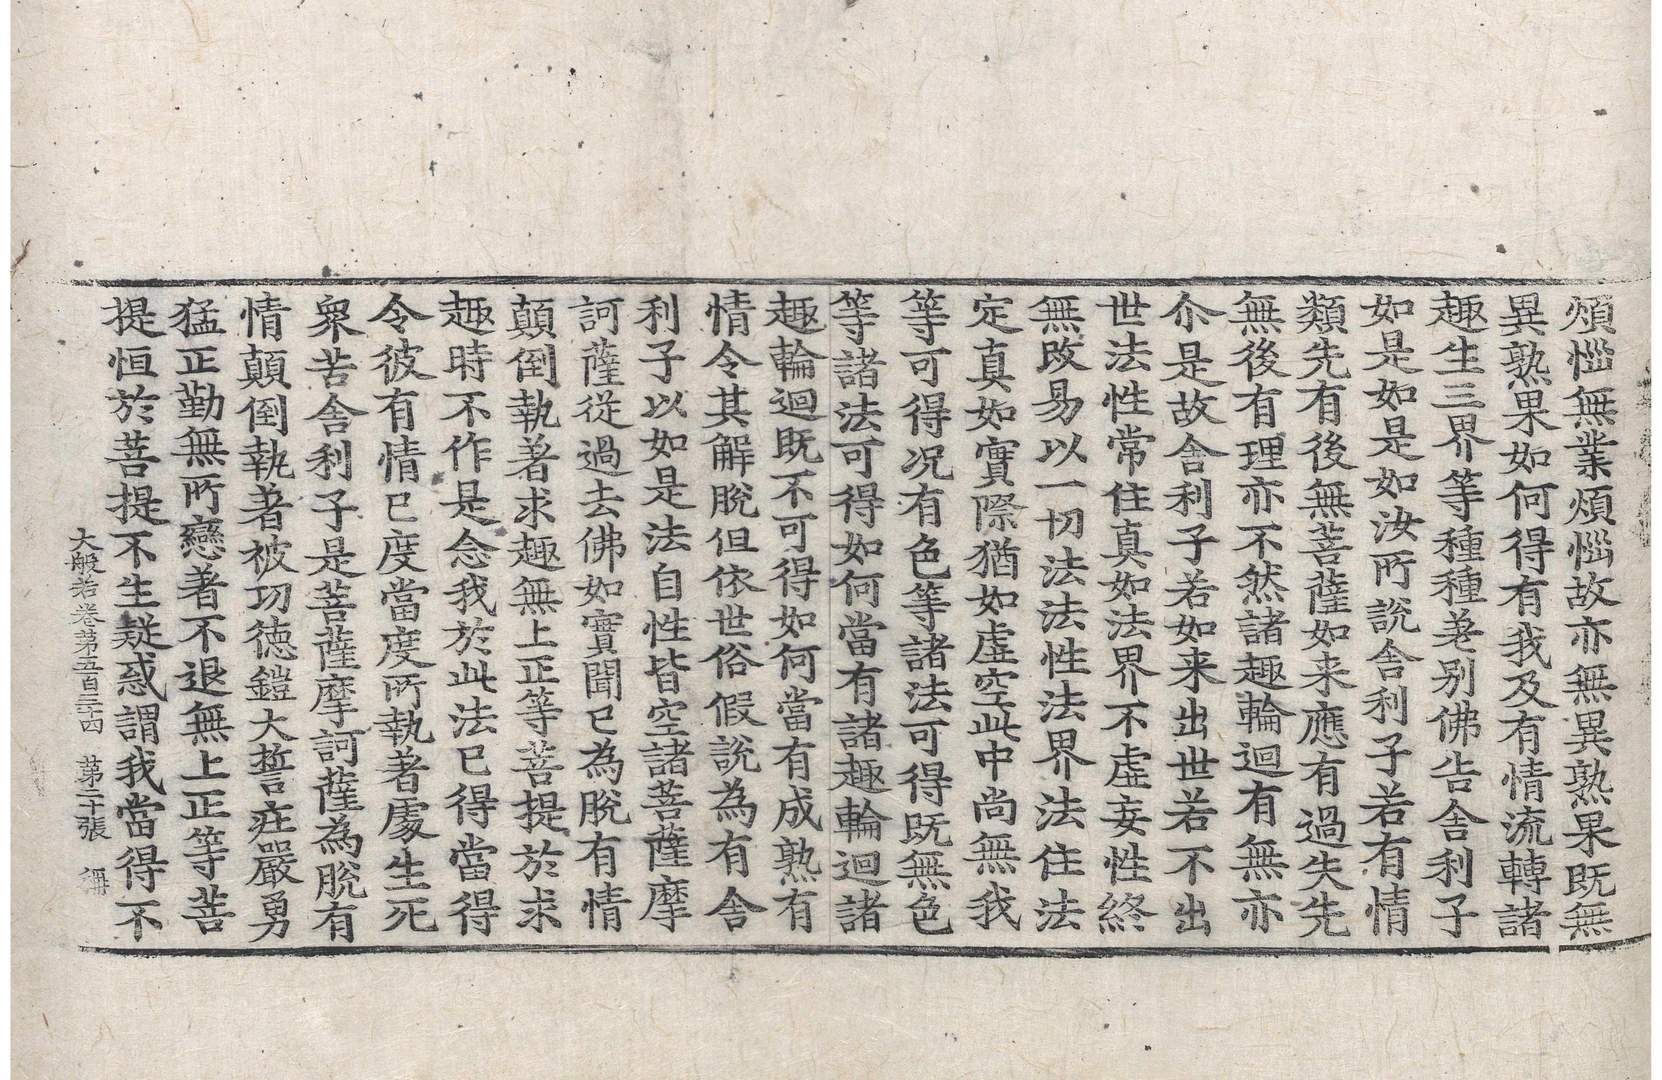 煩惱無業煩惱故亦無異熟果既無
異熟果如何得有我及有情流轉諸
趣生三界等種種差别佛告舍利子
如是如是如汝所說舍利子若有情
類先有後無菩薩如来應有過失先
無後有理亦不然諸趣輪迴有無亦
尒是故舍利子若如来出世若不出
世法性常住真如法界不虛妄性終
無改易以一切法法性法界法住法
定真如實際猶如虛空此中尚無我
等可得况有色等諸法可得既無色
等諸法可得如何當有諸趣輪迴諸
趣輪迴既不可得如何當有成熟有
情令其解脫但依世俗假說為有舍
利子以如是法自性皆空諸菩薩摩
訶薩從過去佛如實聞已為脫有情
顛倒執著求趣無上正等菩提於求
趣時不作是念我於此法已得當得
令彼有情已度當度所執著處生死
衆苦舍利子是菩薩摩訶薩為脫有
情顛倒執著被功德鎧大誓莊嚴勇
猛正勤無所戀著不退無上正等菩
提恒於菩提不生疑惑謂我當得不
大般若卷第五百三十四　第二十張